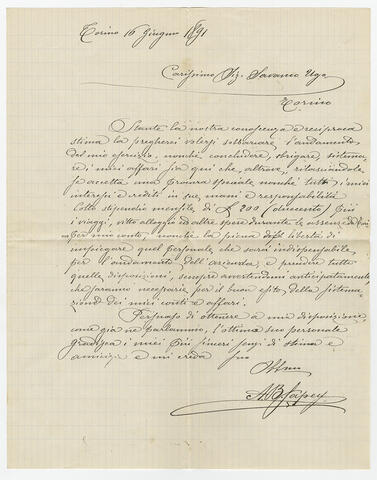 Torino 16 Giugno 1891
Carissimo Sig. Savario
Torino
Stante la nostra conoscenza e reciproca
stima la pregherei volersi sobbarcare l'andamento
del mio esercizio, nonchè concludere, obrigare, sistema-
re di miei affari sia qui che, altrove, rilasciandole
se accetta una procura speciale nonchè tutti i miei
interessi e crediti in sue mani e responsabilità
Collo stipendio mensile di £ 200 più
i viaggi, vitto alloggio ed altre spese durante le assenze
per mio conto, nonchè la piena libertà di
impiegare quel personale che sarà indispensabile
per l'andamento dell'azienda e prendere tutte
quelle disposizioni, sempre avvertendomi anticipatamente,
che saranno necessarie per il buon esito della sistema-
zione dei miei conti e affari.
Persuaso di ottenere a mia disposizione,
come già ne parlammo, l'ottimo suo personale
gradisca i miei più sinceri sensi di stima e
amicizia e mi creda suo